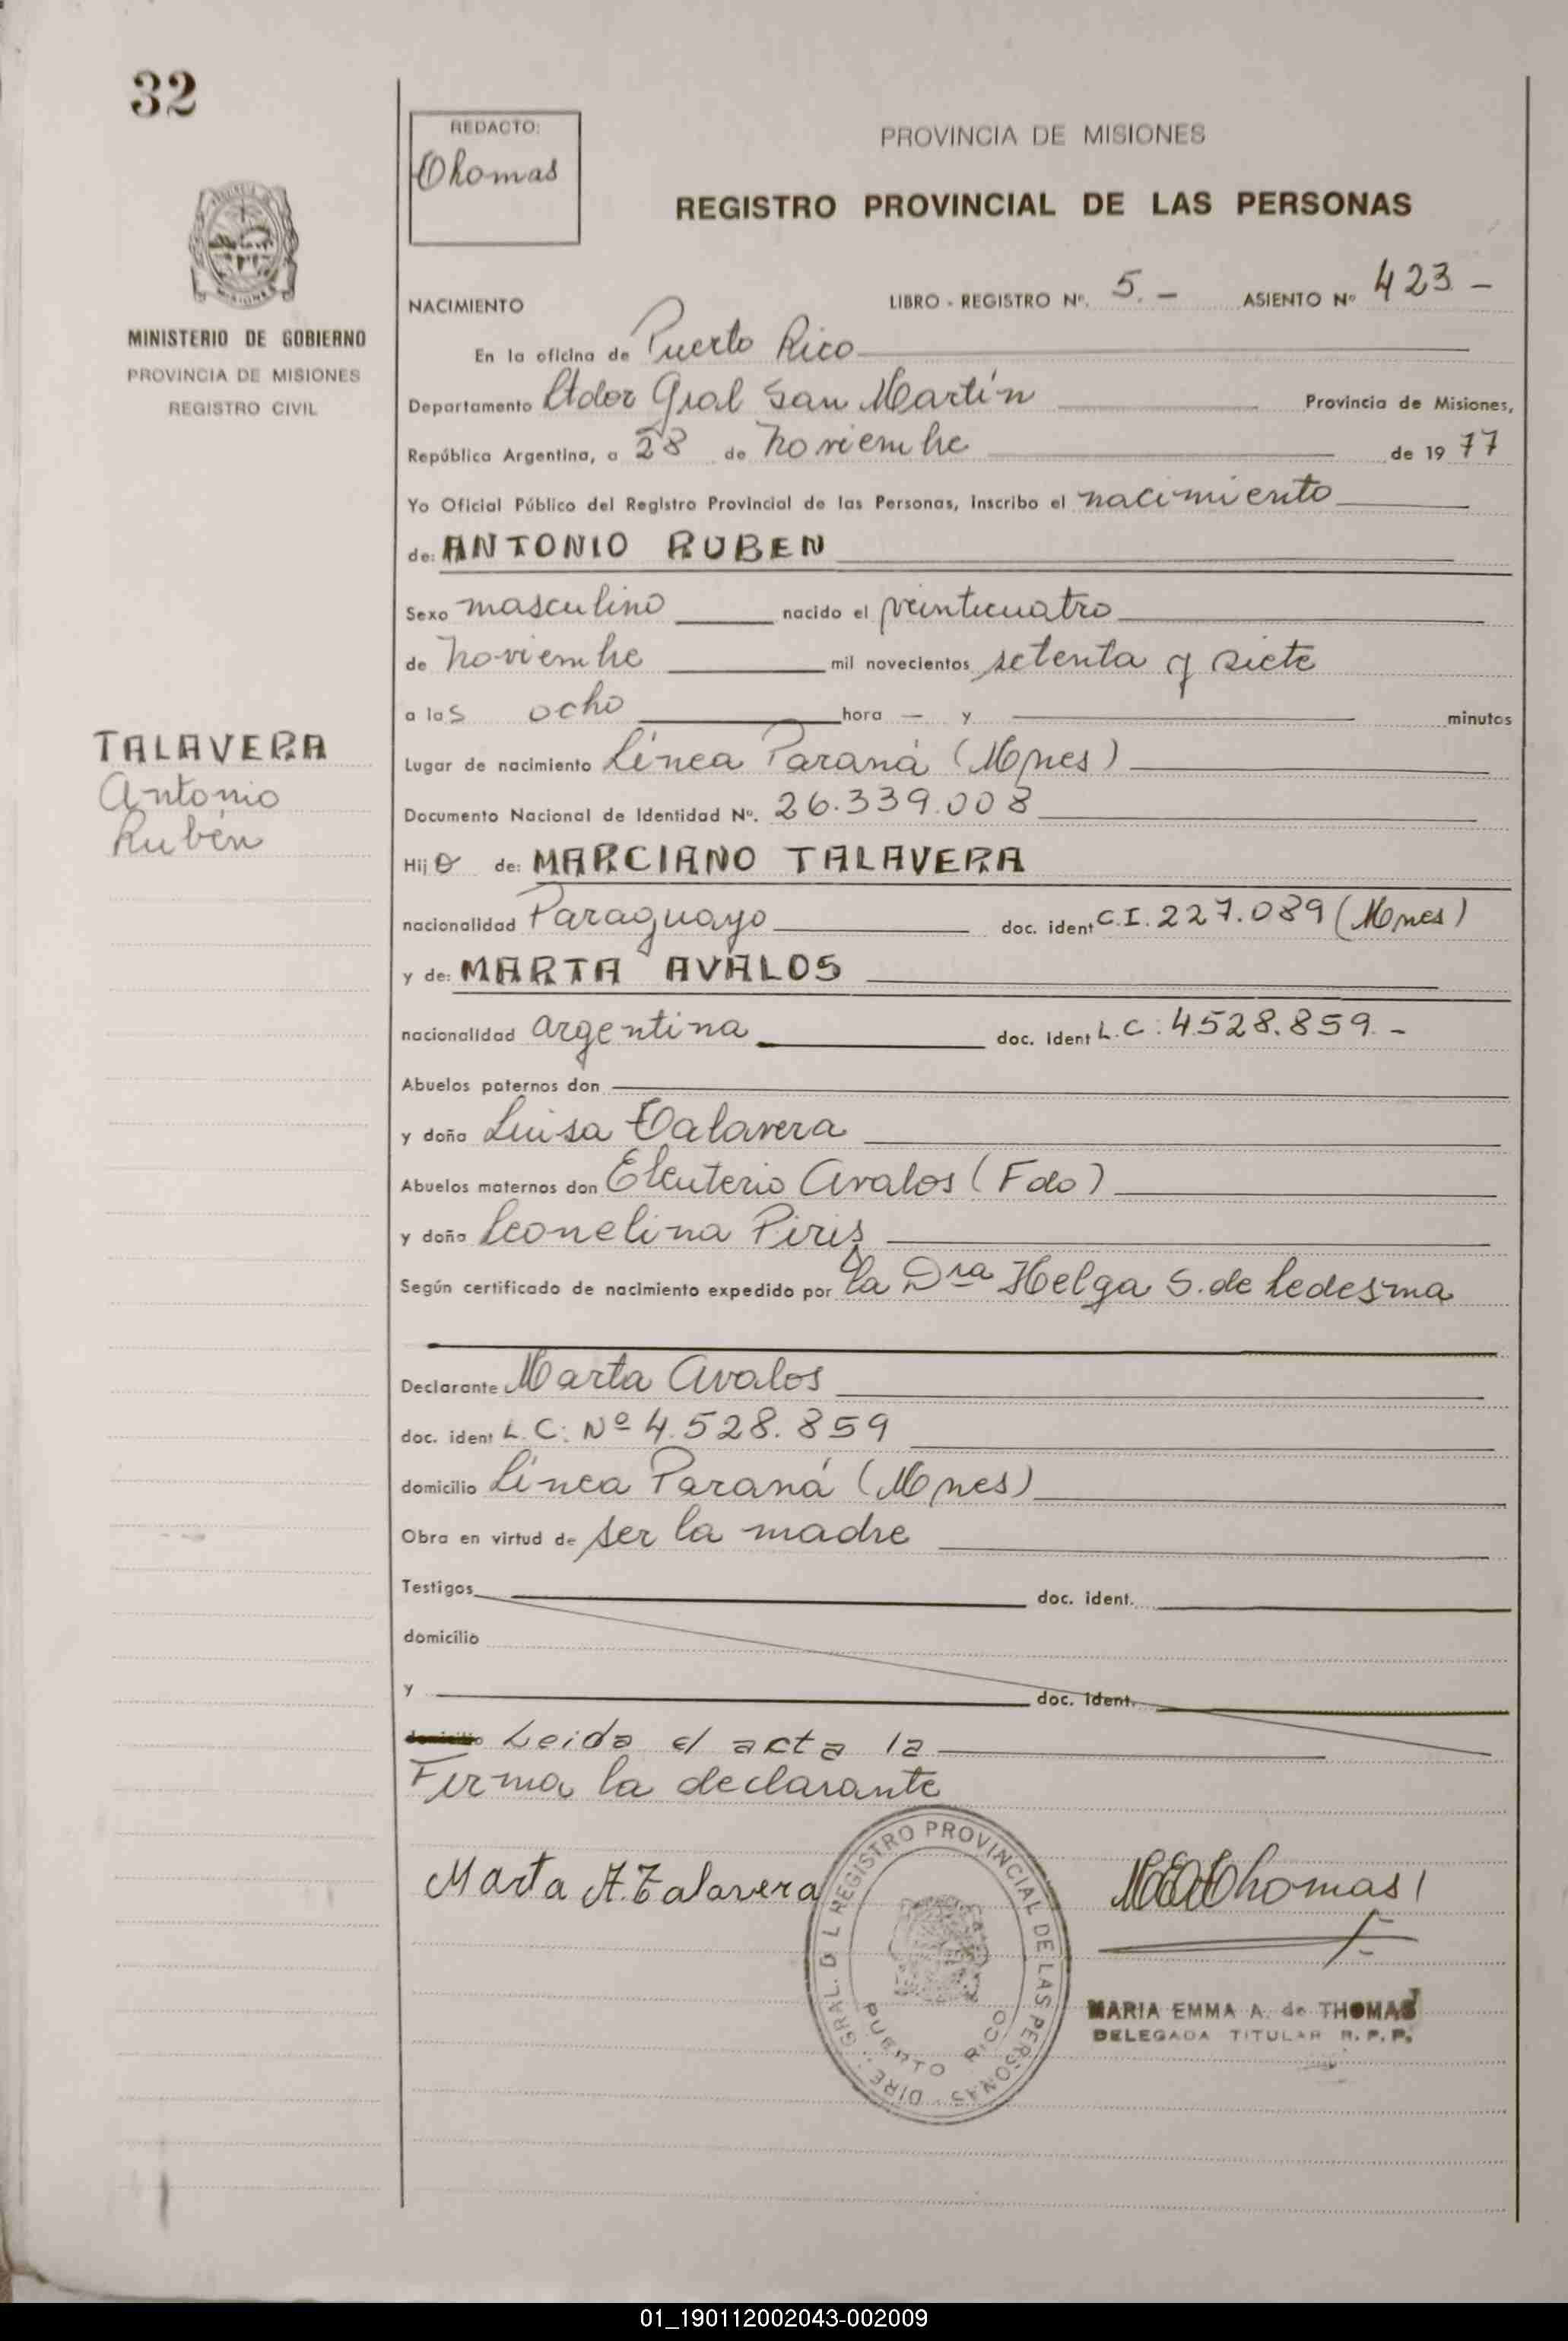 32
REDACTO:
Thomas
PROVINCIA DE MISIONES
REGISTRO PROVINCIAL DE LAS PERSONAS
MINISTERIO DE GOBIERNO
PROVINCIA DE MISIONES
REGISTRO CIVIL
NACIMIENTO LIBRO - REGISTRO Nº. 5.- ASIENTO Nº 423-
En la oficina de Puerto Rico
Departamento Ltdor Gral San Martín Provincia de Misiones,
República Argentina, a 28 de noviembre de 1977
Yo Oficial Público del Registro Provincial de las Personas, inscribo el nacimiento
de: ANTONIO RUBEN
Sexo masculino nacido el veinticuatro
de noviembre mil novecientos setenta y siete
a las ocho hora — y minutos
TALAVERA
Antonio
Rubén
Lugar de nacimiento Línea Paraná (Mnes)
Documento Nacional de Identidad Nº. 26.339.008
Hijo de: MARCIANO TALAVERA
nacionalidad Paraguayo doc. ident C.I. 227.089 (Mnes)
y de: MARTA AVALOS
nacionalidad argentina doc. Ident L.C: 4528.859.-
Abuelos paternos don
y doña Luisa Talavera
Abuelos maternos don Eleuterio Avalos (Fdo)
y doña Leonelina Piris
Según certificado de nacimiento expedido por la Dra Helga S. de Ledesma
Declarante Marta Avalos
doc. ident L.C: Nº 4.528.859
domicilio Línea Paraná (Mnes)
Obra en virtud de ser la madre
Testigos doc. ident.
domicilio
y doc. ident.
Leida el acta la
Firma la declarante
Marta A. Talavera
DIRE. GRAL. D L REGISTRO PROVINCIAL DE LAS PERSONAS
PUERTO RICO
MARIA EMMA A. de THOMAS
DELEGADA TITULAR R.P.P.
01_190112002043-002009